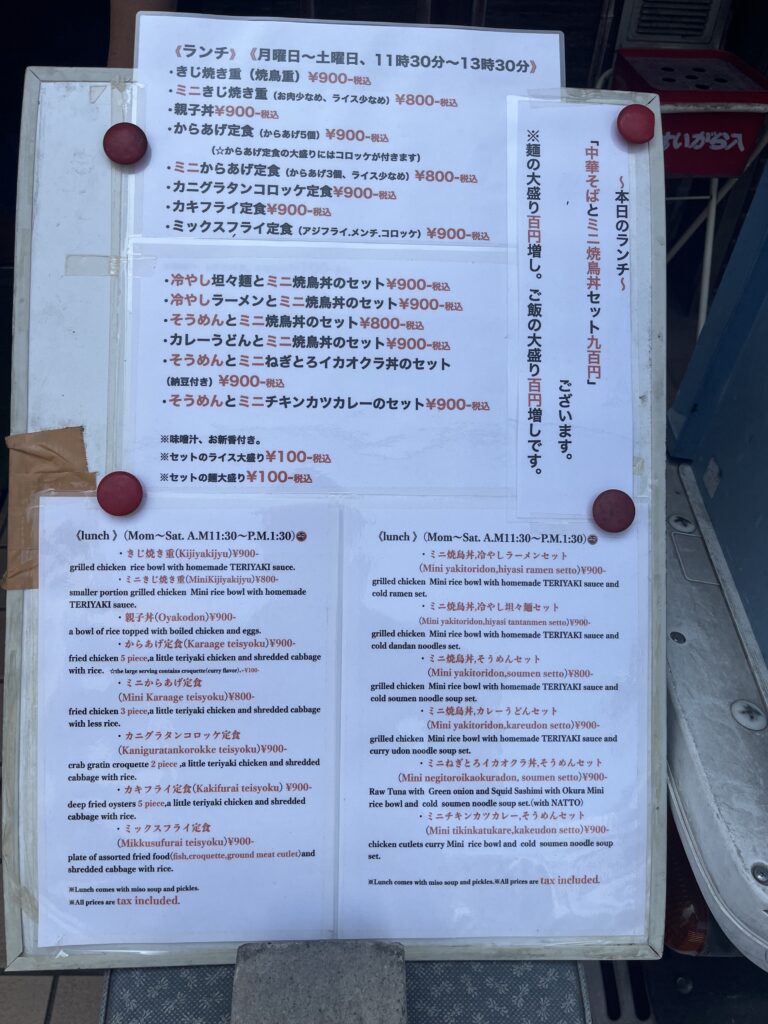 《ランチ》《月曜日〜土曜日、11時30分〜13時30分》
・きじ焼き重（焼鳥重）¥900-税込
・ミニきじ焼き重（お肉少なめ、ライス少なめ）¥800-税込
・親子丼¥900-税込
・からあげ定食（からあげ5個）¥900-税込
（☆からあげ定食の大盛りにはコロッケが付きます）
・ミニからあげ定食（からあげ3個、ライス少なめ）¥800-税込
・カニグラタンコロッケ定食¥900-税込
・カキフライ定食¥900-税込
・ミックスフライ定食（アジフライ,メンチ,コロッケ）¥900-税込
・冷やし坦々麺とミニ焼鳥丼のセット¥900-税込
・冷やしラーメンとミニ焼鳥丼のセット¥900-税込
・そうめんとミニ焼鳥丼のセット¥800-税込
・カレーうどんとミニ焼鳥丼のセット¥900-税込
・そうめんとミニねぎとろイカオクラ丼のセット
（納豆付き）¥900-税込
・そうめんとミニチキンカツカレーのセット¥900-税込
※味噌汁、お新香付き。
※セットのライス大盛り¥100-税込
※セットの麺大盛り¥100-税込
〜本日のランチ〜
「中華そばとミニ焼鳥丼セット九百円」
ございます。
※麺の大盛り百円増し。ご飯の大盛り百円増しです。
《lunch 》（Mom〜Sat. A.M11:30〜P.M.1:30）
・きじ焼き重(Kijiyakijyu)¥900-
grilled chicken rice bowl with homemade TERIYAKI sauce.
・ミニきじ焼き重(MiniKijiyakijyu)¥800-
smaller portion grilled chicken Mini rice bowl with homemade
TERIYAKI sauce.
・親子丼(Oyakodon)¥900-
a bowl of rice topped with boiled chicken and eggs.
・からあげ定食(Karaage teisyoku)¥900-
fried chicken 5 piece,a little teriyaki chicken and shredded cabbage
with rice. ☆the large serving contains croquette(curry flavor).+¥100-
・ミニからあげ定食
(Mini Karaage teisyoku)¥800-
fried chicken 3 piece,a little teriyaki chicken and shredded cabbage
with less rice.
・カニグラタンコロッケ定食
(Kaniguratankorokke teisyoku)¥900-
crab gratin croquette 2 piece ,a little teriyaki chicken and shredded
cabbage with rice.
・カキフライ定食(Kakifurai teisyoku) ¥900-
deep fried oysters 5 piece,a little teriyaki chicken and shredded
cabbage with rice.
・ミックスフライ定食
(Mikkusufurai teisyoku)¥900-
plate of assorted fried food(fish,croquette,ground meat cutlet)and
shredded cabbage with rice.
※Lunch comes with miso soup and pickles.
※All prices are tax included.
《lunch 》（Mom〜Sat. A.M11:30〜P.M.1:30）
・ミニ焼鳥丼,冷やしラーメンセット
(Mini yakitoridon,hiyasi ramen setto)¥900-
grilled chicken Mini rice bowl with homemade TERIYAKI sauce and
cold ramen set.
・ミニ焼鳥丼,冷やし坦々麺セット
(Mini yakitoridon,hiyasi tantanmen setto)¥900-
grilled chicken Mini rice bowl with homemade TERIYAKI sauce and
cold dandan noodles set.
・ミニ焼鳥丼,そうめんセット
(Mini yakitoridon,soumen setto)¥800-
grilled chicken Mini rice bowl with homemade TERIYAKI sauce and
cold soumen noodle soup set.
・ミニ焼鳥丼,カレーうどんセット
(Mini yakitoridon,kareudon setto)¥900-
grilled chicken Mini rice bowl with homemade TERIYAKI sauce and
curry udon noodle soup set.
・ミニねぎとろイカオクラ丼,そうめんセット
(Mini negitoroikaokuradon, soumen setto)¥900-
Raw Tuna with Green onion and Squid Sashimi with Okura Mini
rice bowl and cold soumen noodle soup set.(with NATTO)
・ミニチキンカツカレー,そうめんセット
(Mini tikinkatukare,kakeudon setto)¥900-
chicken cutlets curry Mini rice bowl and cold soumen noodle soup
set.
※Lunch comes with miso soup and pickles.※All prices are tax included.